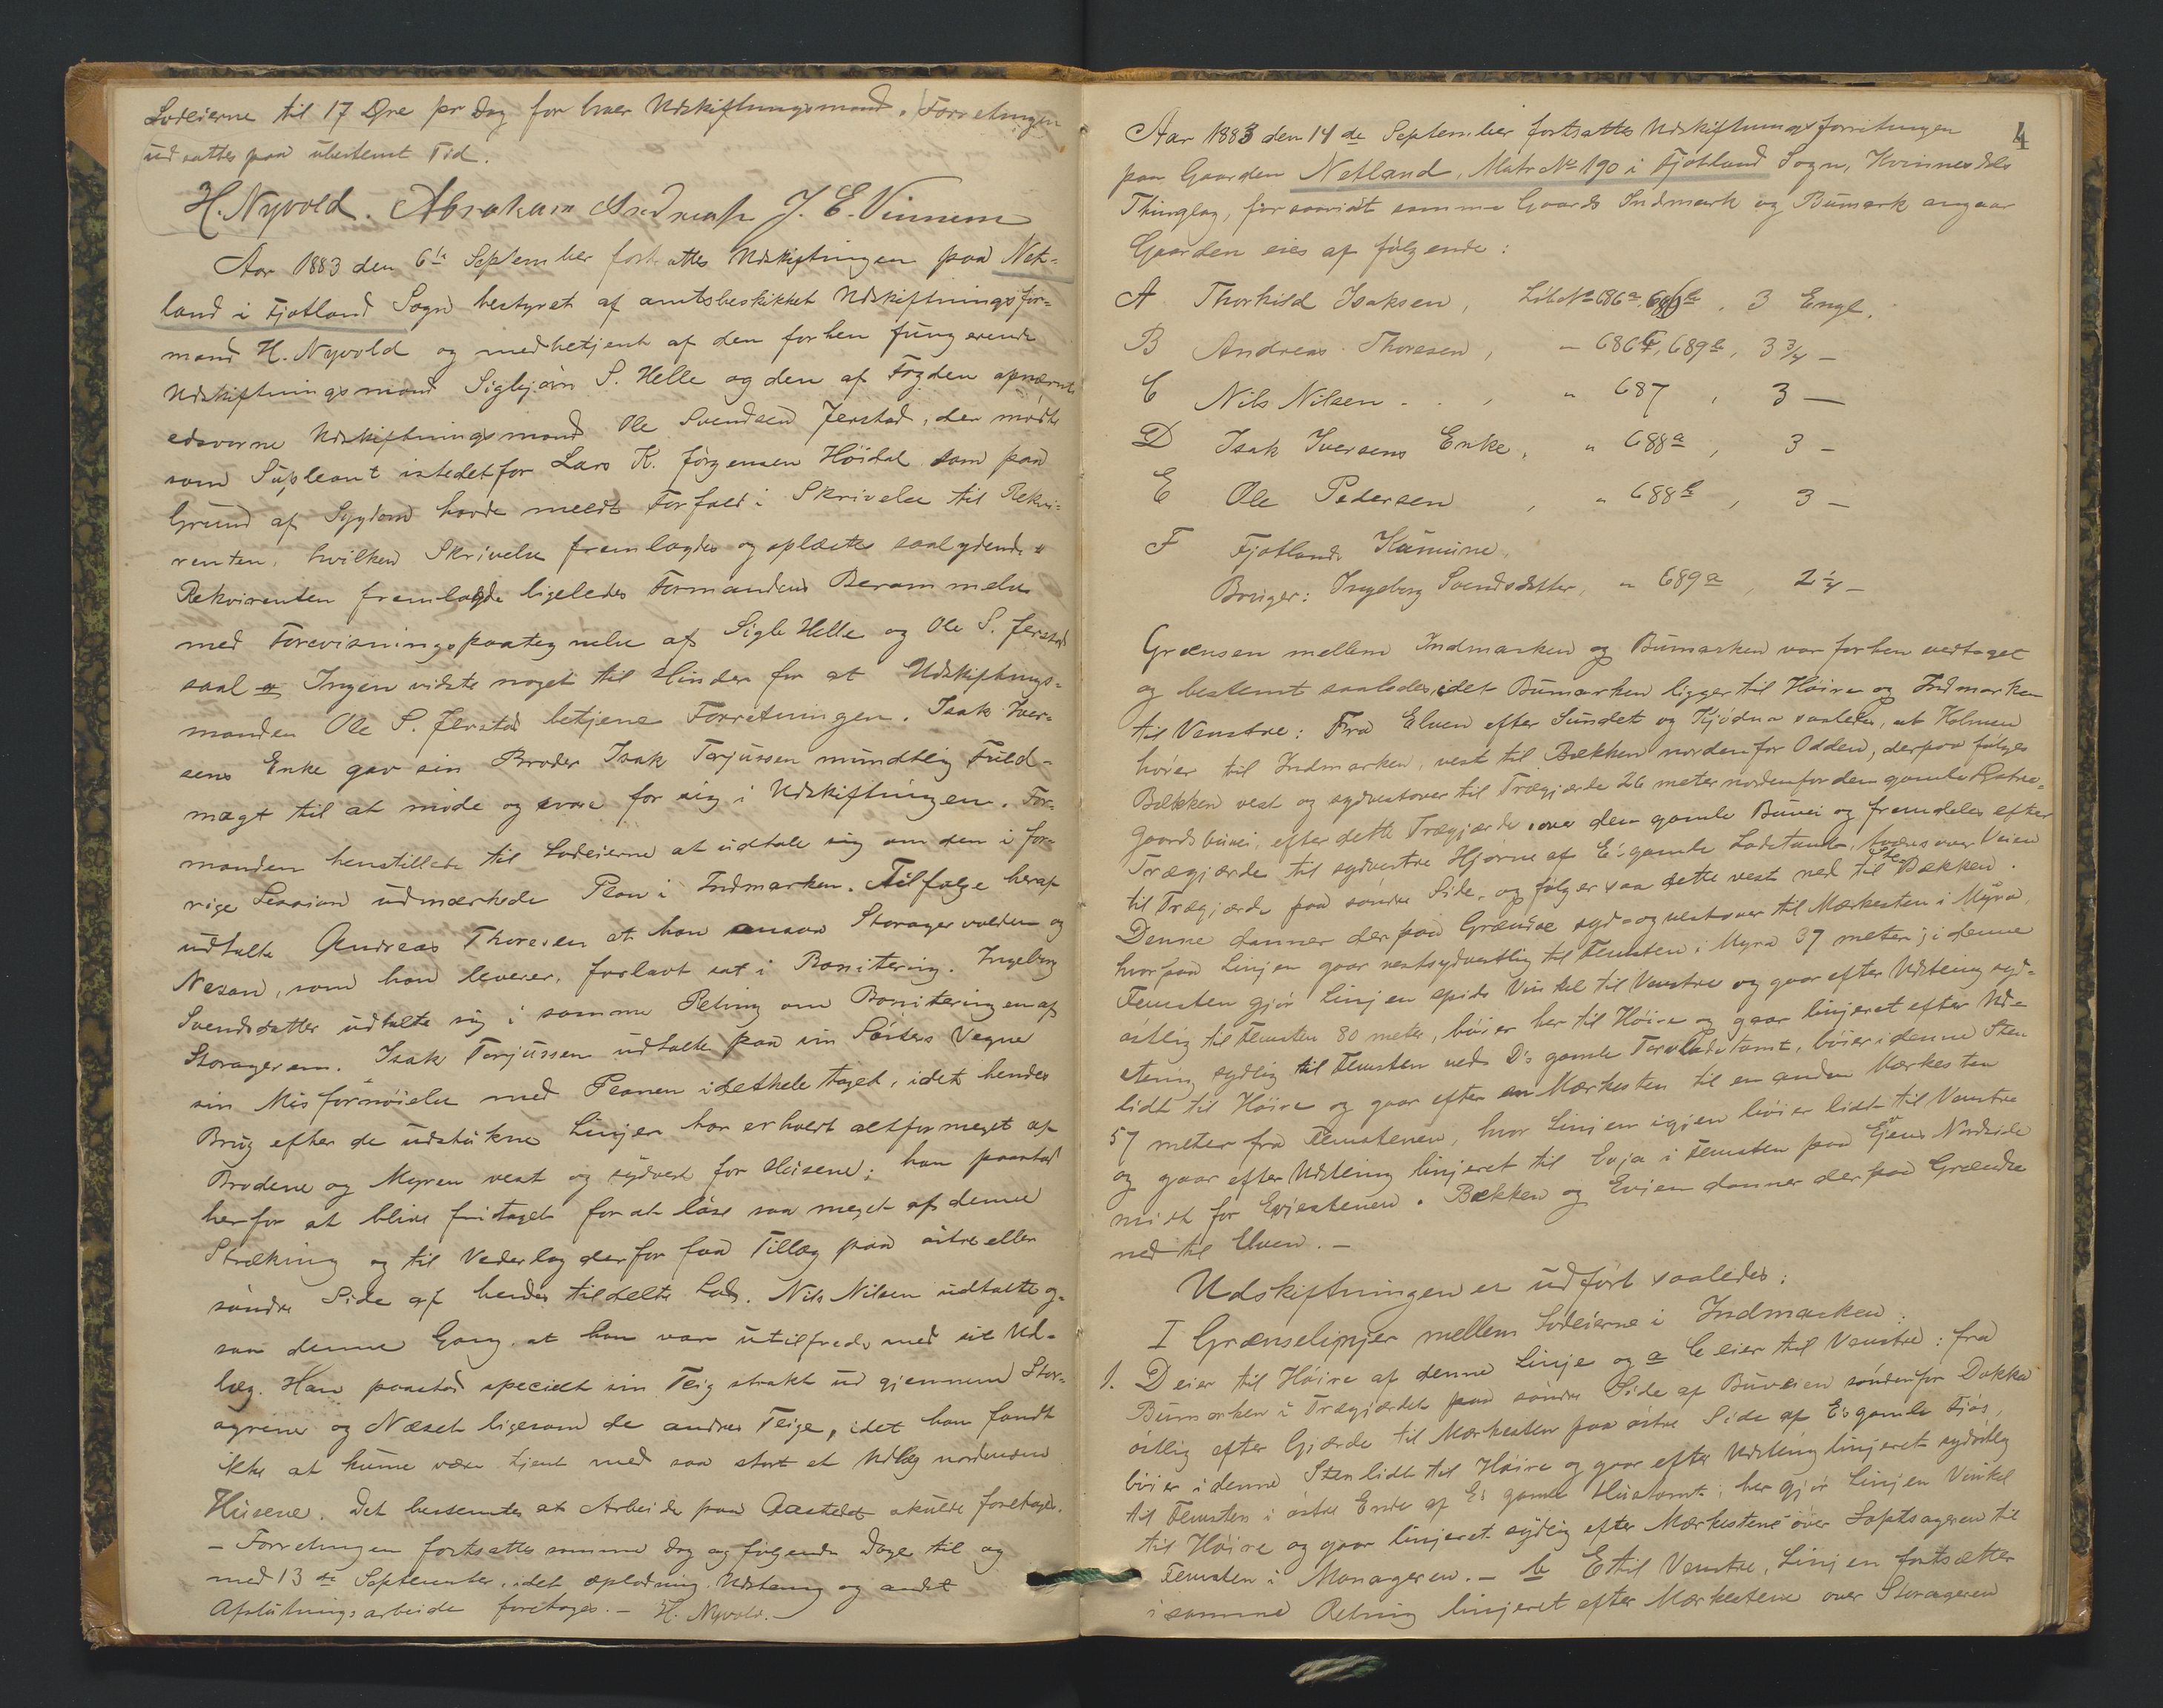 Lodeierne til 17 Øre pr Dag for hver Udskiftningsmand. Forretningen
udsattes paa ubestemt Tid.
H. Nyvold. Abraham J. E. Vinnem
Aar 1883 den 6te September fortsattes Udskiftningen paa Net-
land i Fjotland Sogn bestyret af amtsbeskikket Udskiftningsfor-
mand H. Nyvold og medbetjent af den forhen fungerende
Udskiftningsmand Sigbjørn S. Helle og den af Fogden opnævnte
edsvorne Udskiftningsmand Ole Svendsen Jerstad, der mødte
som Supleant istedetfor Lars K. Jørgensen Høidal som paa
Grund af Sygdom havde meldt Forfald i Skrivelse til Rekvi-
renten, hvilken Skrivelse fremlagdes og oplæstes saalydende
Rekvirenten fremlagde ligeledes Formandens Berammelse
med Forevisningspaategnelse af Sigb Helle og Ole S. Jerstad
saal Ingen vidste noget til Hinder for at Udskiftnings-
manden Ole S. Jerstad betjene Forretningen. Isak Iver-
sens Enke gav sin Broder Isak Terjussen mundtlig Fuld-
magt til at møde og svare for sig i Udskiftningen. For-
manden henstillede til Lodeierne at udtale sig om den i for-
rige Session udmærkede Plan i Indmarken. Tilfølge heraf
udtalte Andreas Thoresen at han ansaa Storager volden og
Nesan, som han leverer, forlavt sat i Bonitering. Ingeborg
Svendsdatter udtalte sig i samme Retning om Boniteringen af
Storageren. Isak Terjussen udtalte paa sin Søsters Vegne
sin Misfornøielse med Planen idethele taget, idet hendes
Brug efter de udstukne Linjer har erholdt altfor meget af
Brodene og Myren vest og sydvest for Husene; han paastod
herfor at blive fritaget for at løse saa meget af denne
Strækning og til Vederlag derfor faa Tillæg paa østre eller
søndre Side af hendes tildelte Lod. Nils Nilsen udtalte og-
saa denne Gang at han var utilfreds med sit Ud-
læg. Han paastod specielt sin Teig strakt ud gjennem Stor-
agrene og Næset ligesom de andres Teige, idet han fandt
ikke at kunne være tjent med saa stort et Udlæg nordenom
Husene. Det bestemtes at Arbeide paa Aastedet skulde foretages.
– Forretningen fortsattes samme Dag og følgende Dage til og
med 13de September, idet oplodning Udstening og andet
Afslutningsarbeide foretoges. – H. Nyvold. –
4
Aar 1883 den 14de September fortsattes Udskiftningsforretningen
paa Gaarden Netland, Matr No 190 i Fjotland Sogn, Kvinesdals
Thinglag, forsaavidt samme Gaards Indmark og Bumark angaar
Gaarden eies af følgende:
A Thorkild Isaksen, Løb No 686a, 686b, 3 Engl.
B Andreas Thoresen, – 686c, 689b, 3 3/4 –
C Nils Nilsen . . , " 687, 3 –
D Isak Iversens Enke, " 688a, 3 –
E Ole Pedersen, " 688b, 3 –
F Fjotlands Kumune,
Bruger: Ingeborg Svendsdatter, " 689a, 2 1/4 –
Grænsen mellem Indmarken og Bumarken var forhen vedtaget
og bestemt saaledes, idet Bumarken ligger til Høire og Indmarken
til Venstre: Fra Elven efter Sundet og Kjødna saaledes, at Holmen
hører til Indmarken, vest til Bækken nordenfor Odden, derpaa følges
Bækken vest og sydvestover til Trægjærde 26 meter nordenfor den gamle Østre-
gaards buvei, efter dette Trægjærde over den gamle Buvei og fremdeles efter
Trægjærde til sydvestre Hjørne af E's gamle Ladetomt, tværs over Veien
til Trægjærde paa søndre Side, og følger saa dette vest ned til Bækken.
Denne danner derpaa Grændse syd- og vestover til Mærkesten i Myra,
hvorpaa Linjen gaar vestsydvestlig til Flusten i Myra 37 meter; i denne
Flusten gjør Linjen spids Vinkel til Venstre og gaar efter Udstening syd-
østlig til Flusten 80 meter, bøier her til Høire og gaar linjeret efter Ud-
stening sydlig til Flusten ved D's gamle Torvladetomt, bøier i denne Sten
lidt til Høire og gaar efter en Mærkesten til en anden Mærkesten
57 meter fra Flustenen, hvor Linjen igjen bøier lidt til Venstre
og gaar efter Udstening linjeret til Evja i Flusten paa Ejens Nordside
midt for Evjestenen. Bækken og Evjen danner derpaa Grændse
ned til Elven. –
Udskiftningen er udført saaledes:
I Grænselinjer mellem Lodeierne i Indmarken:
1. D eier til Høire af denne Linje og a C eier til Venstre: fra
Bumarken i Trægjærdet paa søndre Side af Buveien søndenfor Dokka
østlig efter Gjærde til Mærkesten paa østre Side af E's gamle Fjøs,
bøier i denne Sten lidt til Høire og gaar efter Udstening linjeret sydøstlig
til Flusten i østre Ende af E's gamle Hustomt; her gjør Linjen Vinkel
til Høire og gaar linjeret sydlig efter Mærkestene over Loptsageren til
Flusten i Monageren. – b E til Venstre, Linjen fortsætter
i samme Retning linjeret efter Mærkestene over Storageren